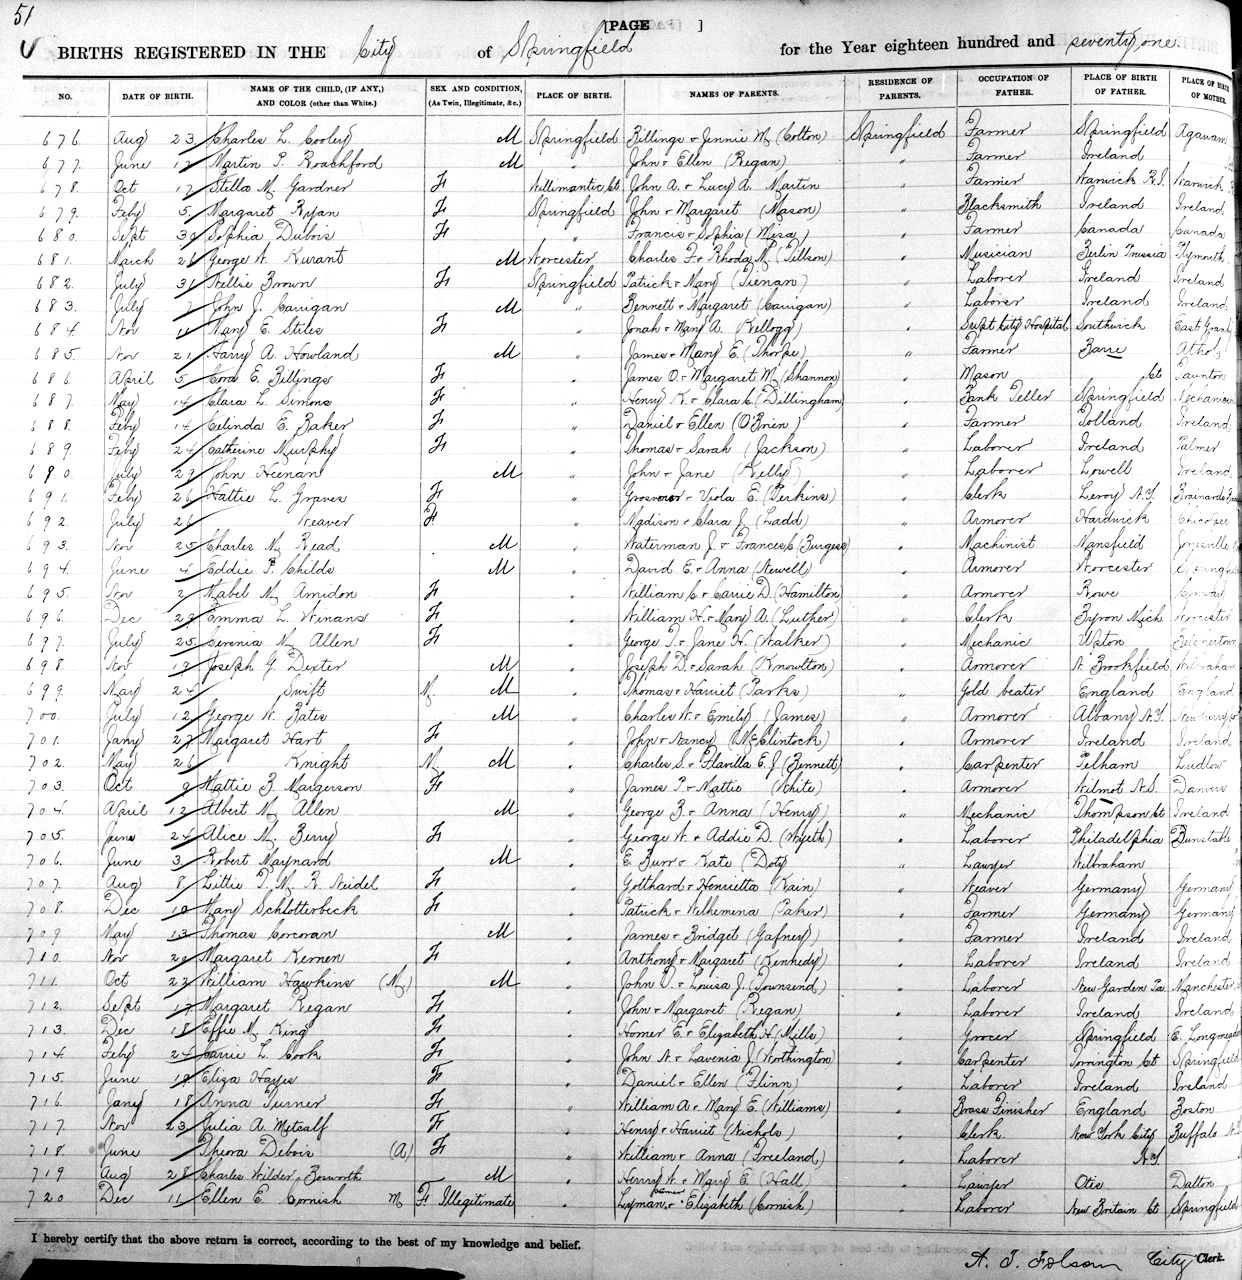 51
[PAGE ]
BIRTHS REGISTERED IN THE City of Springfield for the Year eighteen hundred and seventy one
NO. DATE OF BIRTH. NAME OF THE CHILD, (IF ANY,) AND COLOR (other than White.) SEX AND CONDITION, (As Twin, Illegitimate, &c.) PLACE OF BIRTH. NAMES OF PARENTS. RESIDENCE OF PARENTS. OCCUPATION OF FATHER. PLACE OF BIRTH OF FATHER. PLACE OF BIRTH OF MOTHER.
676. Aug 23 Charles L. Cooley M Springfield Billings & Jennie M. (Cotton) Springfield Farmer Springfield Agawam
677. June 17 Martin P. Roachford M " John & Ellen (Regan) " Farmer Ireland
678. Oct 17 Stella M. Gardner F Willimantic Ct John A. & Lucy A. Martin " Farmer Warwick R.I. Warwick
679. Feby 5 Margaret Ryan F Springfield John & Margaret (Mason) " Blacksmith Ireland Ireland
680. Sept 30 Sophia Dubois F " Francis & Sophia (Misa) " Farmer Canada Canada
681. March 26 George W. Kurant M Worcester Charles F. & Rhoda M. (Tillson) " Musician Berlin Prussia Plymouth
682. July 31 Nellie Brown F Springfield Patrick & Mary (Tienan) " Laborer Ireland Ireland
683. July 7 John J. Carrigan M " Bennett & Margaret (Carrigan) " Laborer Ireland Ireland
684 Nov 11 Mary E. Stiles F " Jonah & Mary A. (Kellogg) " Supt City Hospital Southwick East Granby
685. Nov 21 Harry A. Howland M " James & Mary E. (Thorpe) " Farmer Barre Athol
686. April 5 Cora E. Billings F " James O. & Margaret M. (Shannon) " Mason Ct Taunton
687. May 14 Clara L. Simons F " Henry K. & Clara C. (Dillingham) " Bank Teller Springfield
688. Feby 14 Celinda E. Baker F " Daniel & Ellen (O'Brien) " Farmer Tolland Ireland
689 Feby 24 Catherine Murphy F " Thomas & Sarah (Jackson) " Laborer Ireland Palmer
680. July 29 John Heenan M " John & Jane (Kelly) " Laborer Lowell Ireland
691. Feby 26 Hattie L. Graves F " Grosvenor & Viola E. (Perkins) " Clerk Leroy N.Y.
692. July 26 Weaver F " Madison & Clara J. (Ladd) " Armorer Hardwick Chicopee
693. Nov 25 Charles M. Read M " Waterman J. & Frances C. (Burgess) " Machinist Mansfield Jonesville
694. June 4 Eddie P. Childs M " David E. & Anna (Newell) " Armorer Worcester Springfield
695. Nov 2 Mabel M. Amidon F " William C. & Carrie D. (Hamilton) " Armorer Rowe Conway
696. Dec 23 Emma L. Winans F " William H. & Mary A. (Luther) " Clerk Byron Mich Worcester
697. July 25 Serenia M. Allen F " George T. & Jane H. (Walker) " Mechanic Upton Belchertown
698. Nov 19 Joseph G. Dexter M " Joseph D. & Sarah (Knowlton) " Armorer N. Brookfield Wilbraham
699. May 24 Swift N. M " Thomas & Harriet (Parks) " Gold beater England England
700. July 12 George W. Bates M " Charles W. & Emily (James) " Armorer Albany N.Y.
701. Jany 27 Margaret Hart F " John & Nancy (McClintock) " Armorer Ireland Ireland
702. May 26 Knight N. M " Charles S. & Flavilla E. J. (Bennett) " Carpenter Pelham Ludlow
703. Oct 9 Mattie B. Margerson F " James P. & Mattie (White) " Armorer Wilmot N.S. Danvers
704. April 12 Albert M. Allen M " George B. & Anna (Henry) " Mechanic Thompson Ct Ireland
705. June 24 Alice M. Berry F " George W. & Addie D. (Wyeth) " Laborer Philadelphia Dunstable
706. June 3 Robert Maynard M " E. Burr & Kate (Doty) " Lawyer Wilbraham
707. Aug 8 Littie T. M. R. Neidel F " Gotthard & Henrietta (Kain) " Weaver Germany Germany
708. Dec 10 Mary Schlotterbeck F " Patrick & Wilhemina (Paker) " Farmer Germany Germany
709 May 13 Thomas Corcoran M " James & Bridget (Gafney) " Farmer Ireland Ireland
710. Nov 20 Margaret Kernen F " Anthony & Margaret (Kennedy) " Laborer Ireland Ireland
711. Oct 22 William Hawkins (M.) M " John V. & Louisa J. (Townsend) " Laborer New Garden Pa Manchester
712. Sept 17 Margaret Regan F " John & Margaret (Regan) " Laborer Ireland Ireland
713. Dec 18 Effie M. King F " Homer E. & Elizabeth H. (Mills) " Grocer Springfield E. Longmeadow
714. Feby 24 Carrie L. Cook F " John N. & Lavenia J. (Worthington) " Carpenter Torrington Ct Springfield
715. June 19 Eliza Hayes F " Daniel & Ellen (Flinn) " Laborer Ireland Ireland
716. Jany 18 Anna Turner F " William A. & Mary E. (Williams) " Brass Finisher England Boston
717. Nov 23 Julia A. Metcalf F " Henry & Harriet (Nichols) " Clerk New York City Buffalo N.Y.
718 June Theora Debois (A) F " William & Anna (Freeland) " Laborer N.Y.
719 Aug 28 Charles Wilder Bosworth M " Henry W. & Mary E. (Hall) " Lawyer Otis Dalton
720 Dec 11 Ellen E. Cornish M F Illegitimate " Lyman & Elizabeth (Cornish) " Laborer New Britain Ct Springfield
I hereby certify that the above return is correct, according to the best of my knowledge and belief.
A. T. Folsom City Clerk.